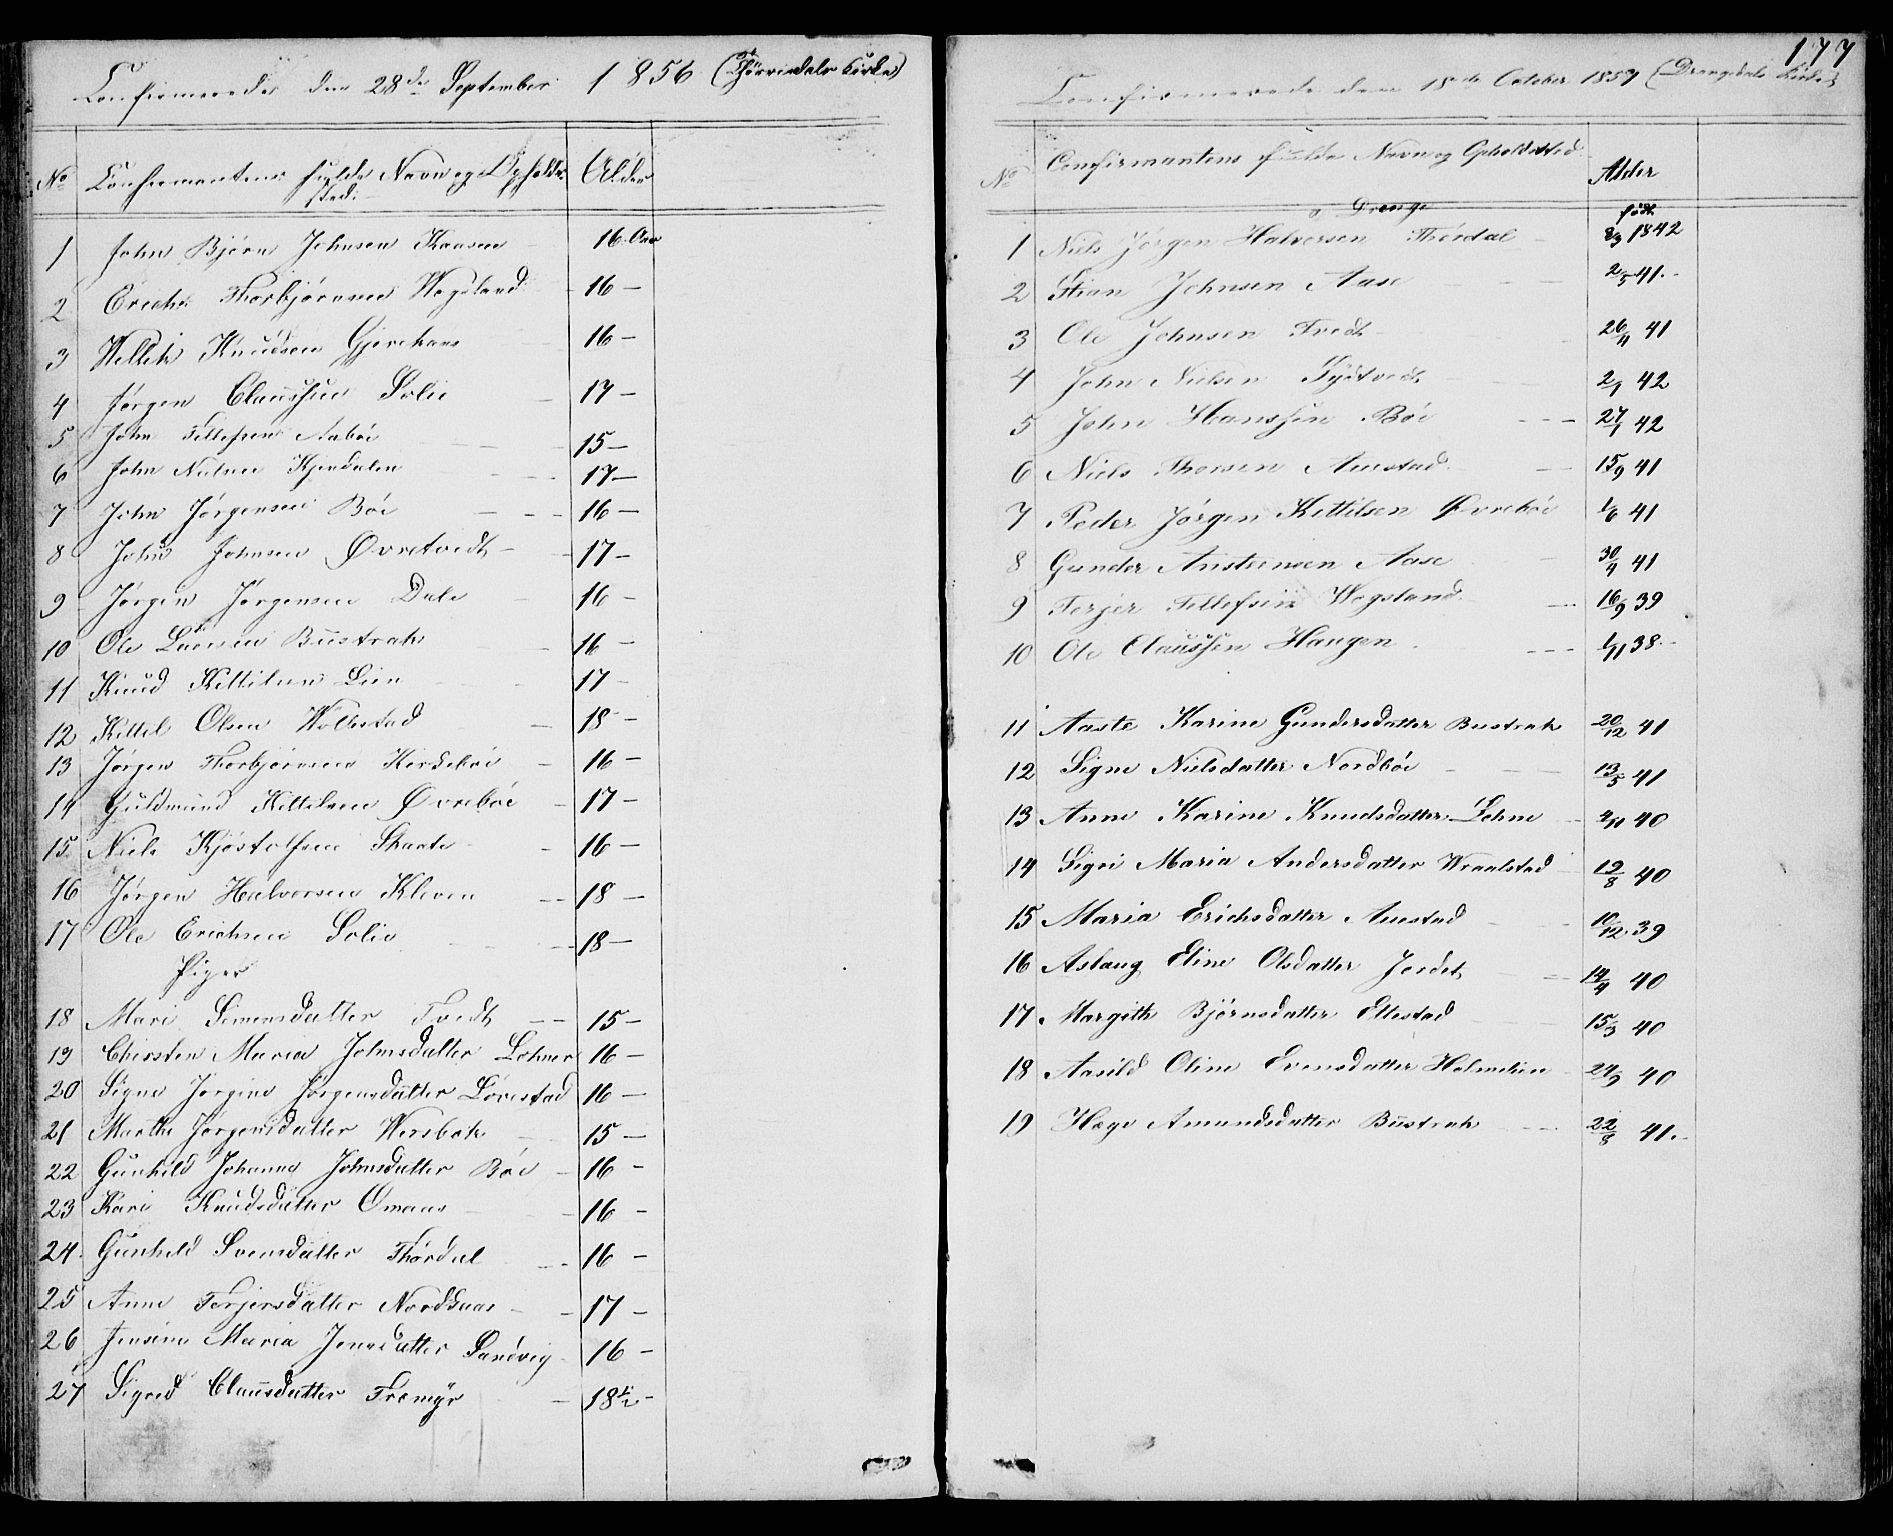 Confirmerede den 28de September 1856 (Tørrisdals Kirke)
No Confirmantens fulde Navn og Opholds- Alder
sted.
1 John Bjørn Johnsen Kaasen 16 Aar
2 Erich Thorbjørnsen Wegsland 16 —
3 Knudsen 16 —
4 Jørgen Claussen Solie 17 —
5 John Tellefsen Aabøe 15 —
6 John Nielsen 17 —
7 John Jørgensen Bøe 16 —
8 John Johnsen Øvretvedt 17 —
9 Jørgen Jørgensen Dale 16 —
10 Ole Bustrak 16 —
11 Knud Kettilsen Lien 17 —
12 Kittil Olsen Wollestad 18 —
13 Jørgen Thorbjørnsen 16 —
14 Guldmund Kittilsen Øvrebøe 17 —
15 Niels Kjøstolfsen Skaate 16 —
16 Jørgen Halvorsen Kleven 18 —
17 Ole Erichsen Solie 18 —
Piger
18 Mari Simensdatter Tvedt 15 —
19 Chirsten Maria Johnsdatter Lohne 16 —
20 Signe Jørgine Jørgensdatter Lørestad 16 —
21 Marthe Jørgensdatter 15 —
22 Gunhild Johanne Johnsdatter Bøe 16 —
23 Kari Knudsdatter Omaas 16 —
24 Gunhild Svensdatter Thørdal 16 —
25 Anne Terjersdatter Nordsaas 17 —
26 Jensine Maria Jensdatter Sandvig 16 —
27 Sigred Clausdatter Træmyr 18½ —
177
Confirmerede den 18de October 1857 (Drangedals Kirke)
No Confirmantens fulde Navn og Opholdssted Alder
a Drenge født
1 Niels Jørgen Halvorsen Thørdal 8/3 1842
2 Stian Johnsen Aase 2/5 41.
3 Ole Johnsen Tvedt 26/11 41
4 John Nielsen 2/1 42
5 John Hanssen Bøe 27/1 42
6 Niels Thorsen Aasstad 15/9 41
7 Peder Jørgen Kittilsen Øvrebøe 1/6 41
8 Gunder Austeensen Aase 30/4 41
9 Terjer Tellefsen Wegsland 16/9 39
10 Ole Claussen Haugen 1/11 38.
11 Aaste Karine Gundersdatter Bustrak 20/12 41
12 Signe Nielsdatter Nordbøe 13/5 41
13 Anne Karine Knudsdatter Lohne 2/11 40
14 Sigri Maria Andersdatter Wraalstad 12/8 40
15 Maria Erichsdatter Aasstad 10/12 39
16 Aslaug Eline Olsdatter Jordet 14/4 40
17 Margith Bjørnsdatter Ettestad 15/3 40
18 Aasild Oline Evensdatter Holmlien 24/9 40
19 Hæge Amundsdatter Bustrak 22/8 41.